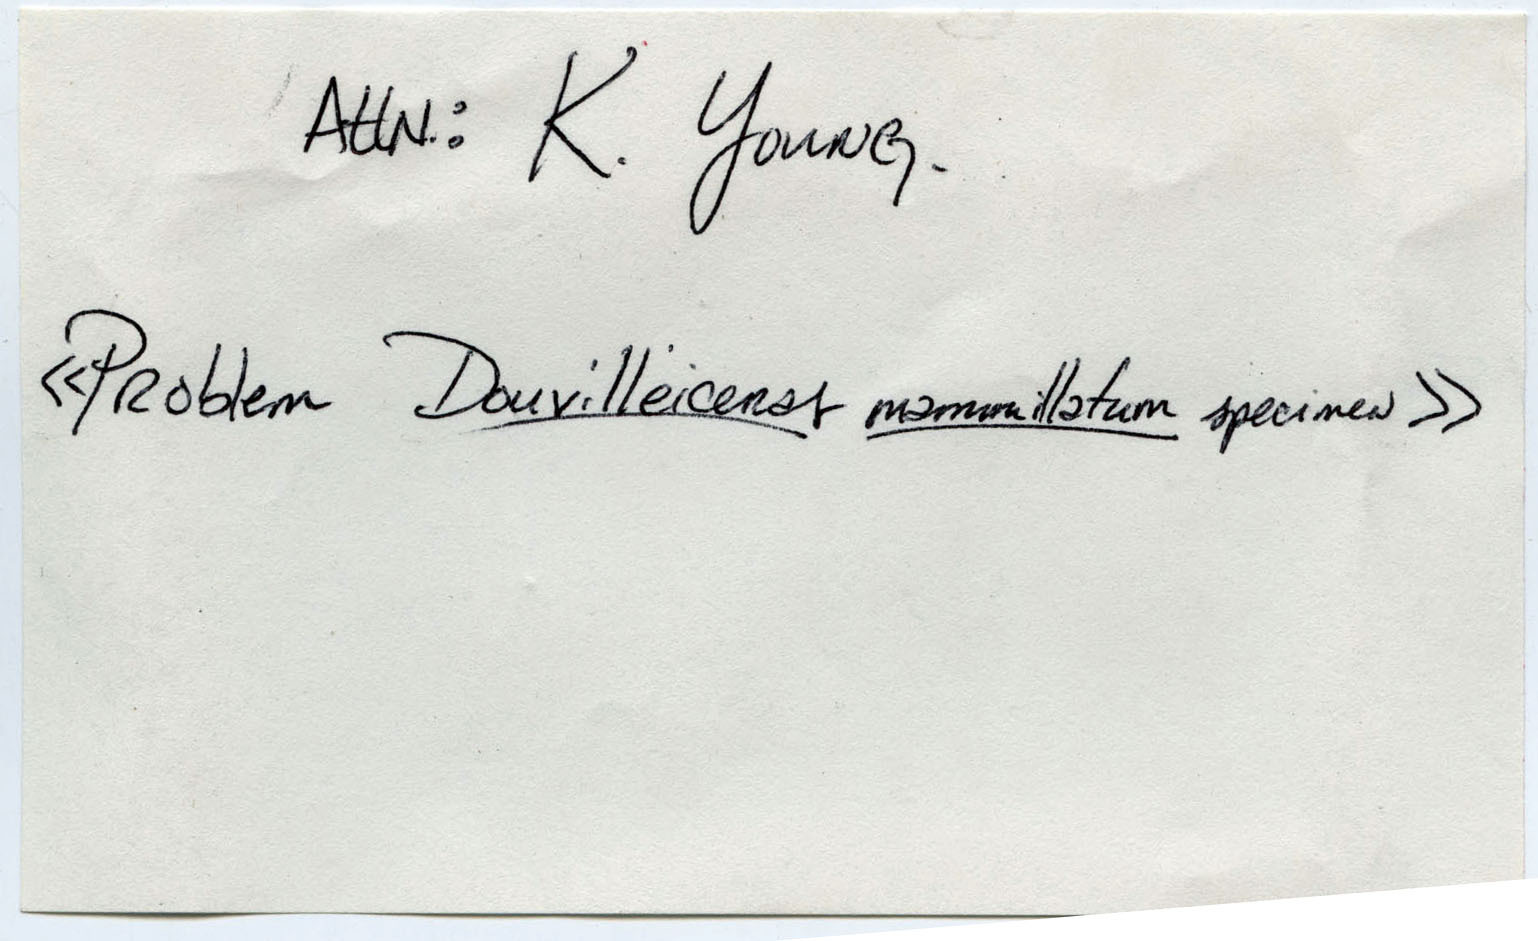 Attn.: K. Young.
<<Problem Douvilleiceras mammillatum specimen>>